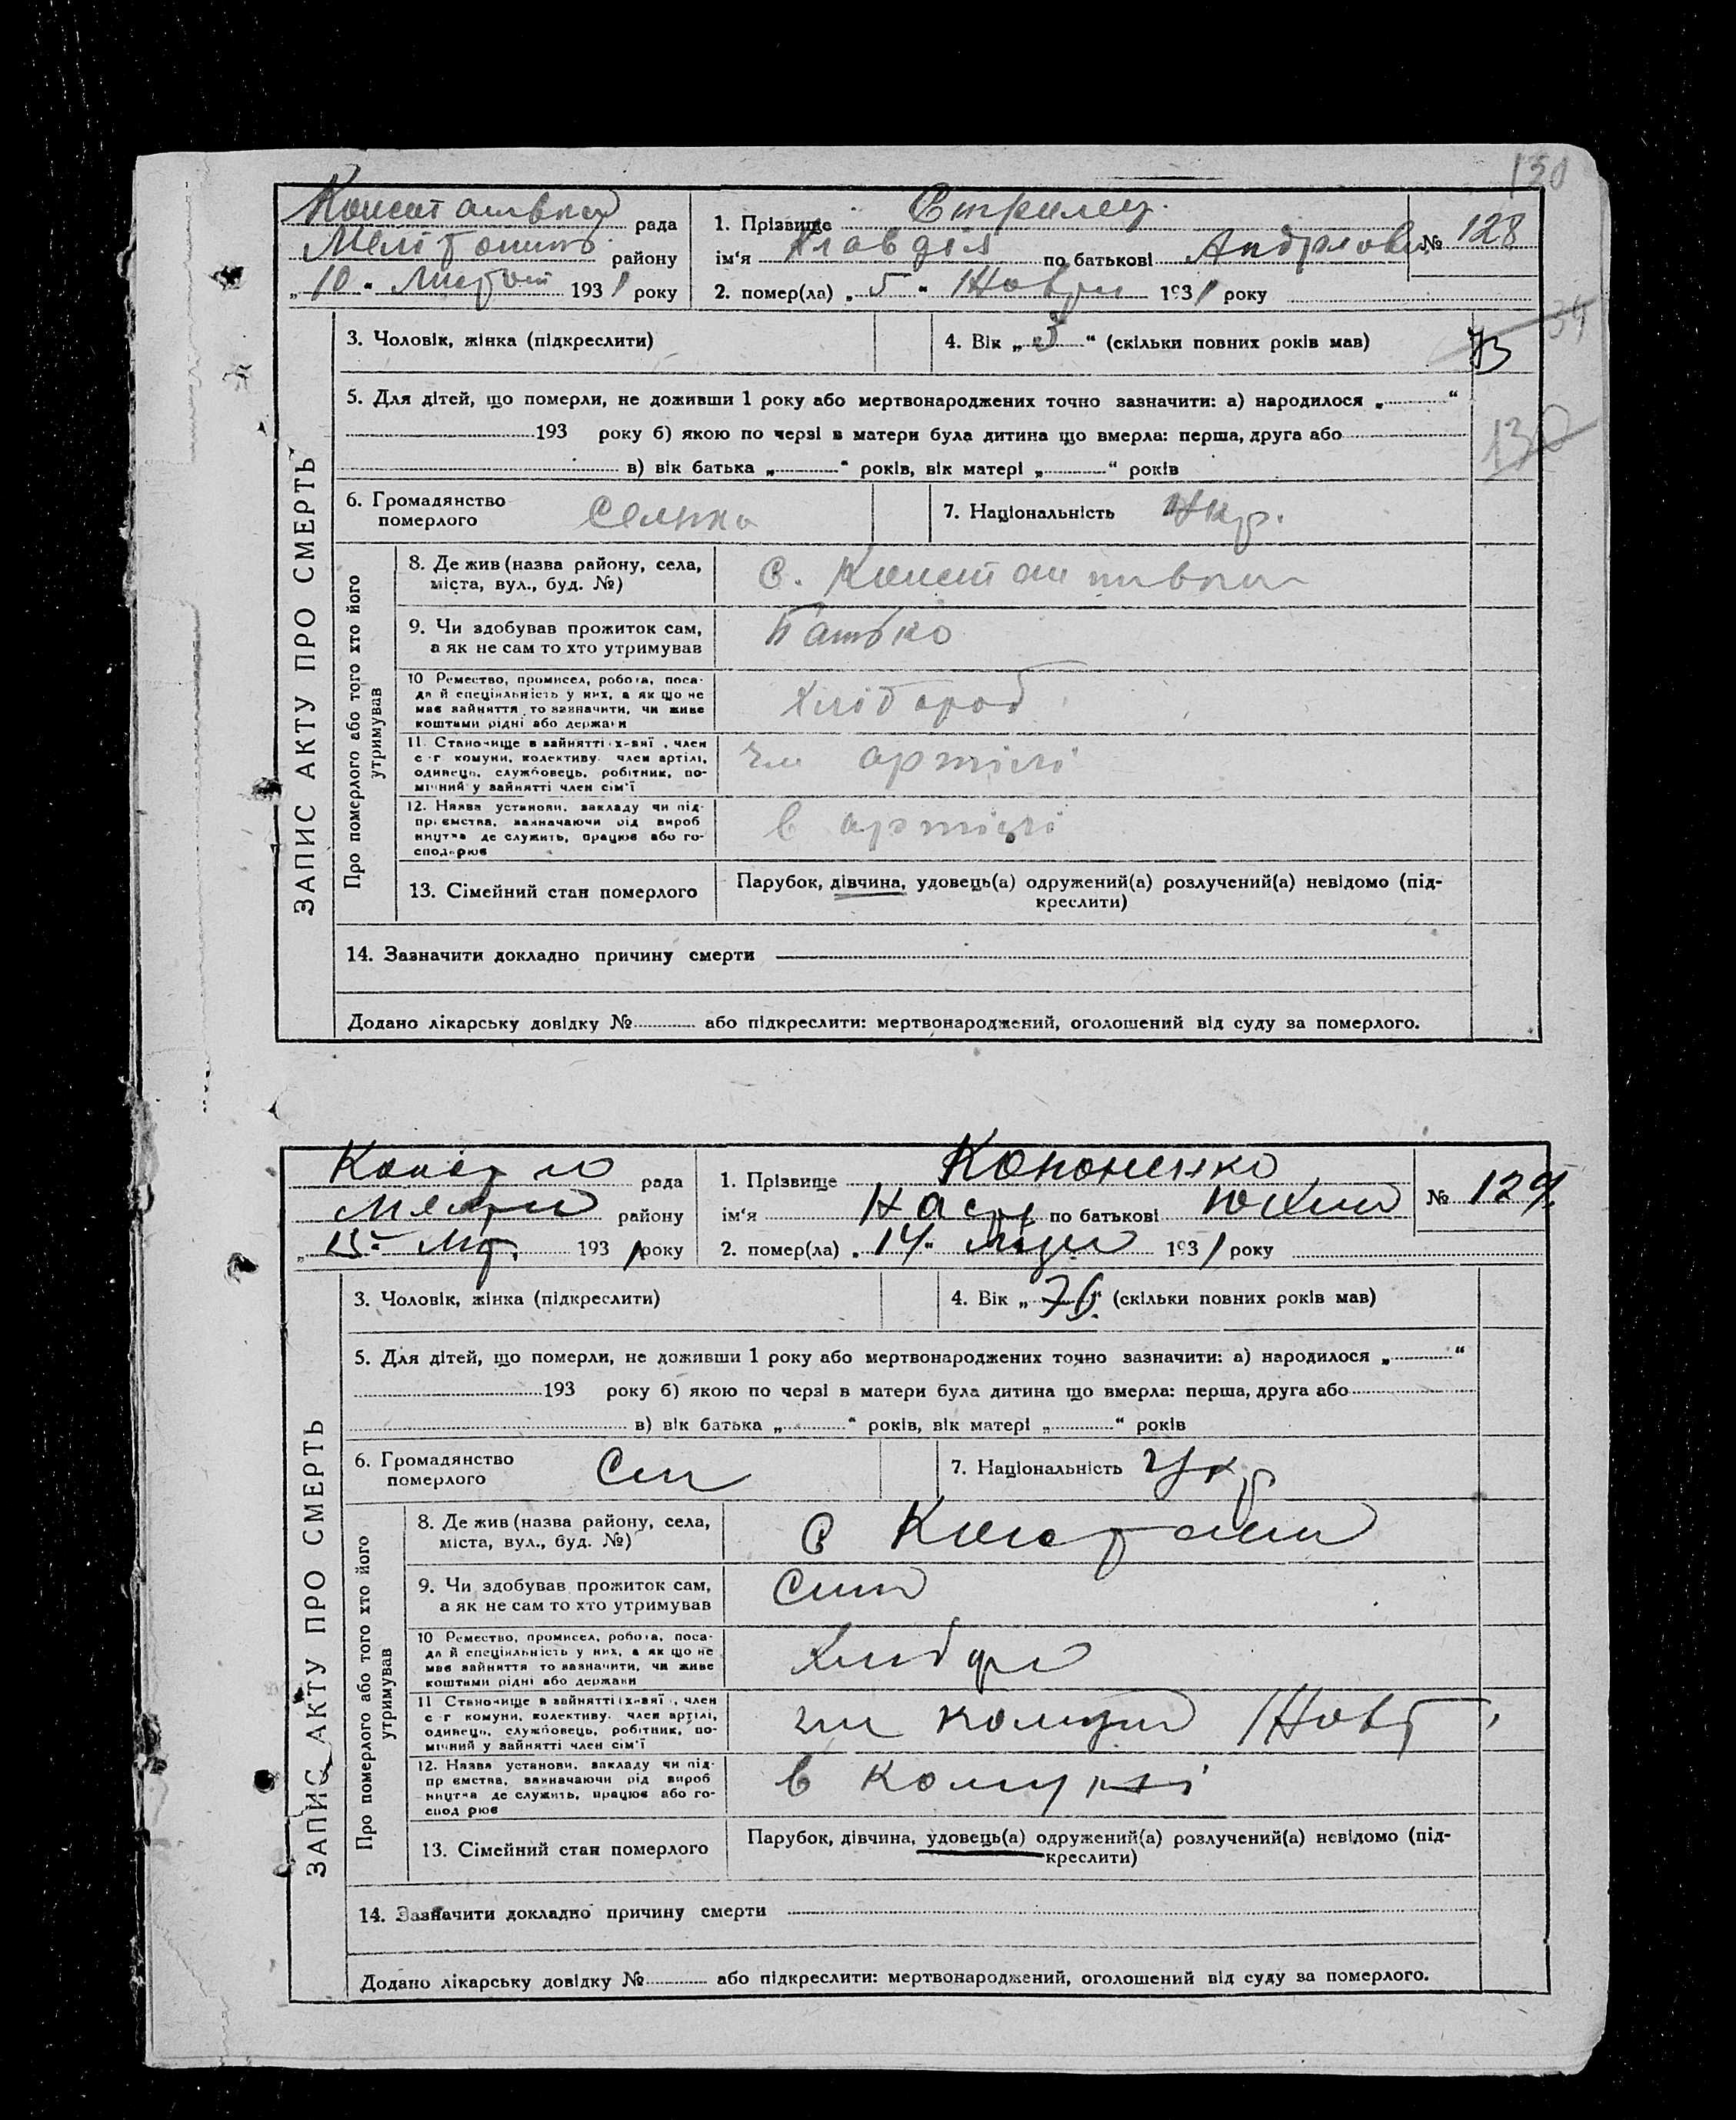 130
Констанівка рада
Мелітопіль району
„10“ Листоп 1931 року
1. Прізвище Стрилец
ім'я Клавдія по батькові Андріяові № 128
2. помер(ла) „5“ Новбри 1931 року
3. Чоловік, жінка (підкреслити)
4. Вік „3“ (скільки повних років мав)
5. Для дітей, що померли, не доживши 1 року або мертвонароджених точно зазначити: а) народилося „ “
193 року б) якою по черзі в матери була дитина що вмерла: перша, друга або
130
в) вік батька „ “ років, вік матері „ “ років
6. Громадянство
померлого
Селянка
7. Національність Укр.
ЗАПИС АКТУ ПРО СМЕРТЬ
Про померлого або того хто його
утримував
8. Де жив (назва району, села,
міста, вул., буд. №)
С. Констан тивка
9. Чи здобував прожиток сам,
а як не сам то хто утримував
Батько
10 Ремество, промисел, робота, поса-
да й спеціяльність у них, а як що не
має зайняття то зазначити, чи живе
коштами рідні або держави
Хлібороб
11. Становище в зайнятті х-вяї, член
с-г комуни, колективу. член артілі,
одинець, службовець, робітник, по-
мічний у зайнятті член сім'ї
чл артілі
12. Назва установи, закладу чи під-
приємства, зазначаючи рід вироб
ництва де служить, працює або го-
сподарює
в артілі
13. Сімейний стан померлого
Парубок, дівчина, удовець(а) одружений(а) розлучений(а) невідомо (під-
креслити)
14. Зазначити докладно причину смерти
Додано лікарську довідку № або підкреслити: мертвонароджений, оголошений від суду за померлого.
рада
району
193 року
1. Прізвище Кононенко
ім'я Наст по батькові Юхим № 129
2. помер(ла) „14“ 1931 року
3. Чоловік, жінка (підкреслити)
4. Вік „76“ (скільки повних років мав)
5. Для дітей, що померли, не доживши 1 року або мертвонароджених точно зазначити: а) народилося „ “
193 року б) якою по черзі в матери була дитина що вмерла: перша, друга або
в) вік батька „ “ років, вік матері „ “ років
6. Громадянство
померлого
Сел
7. Національність Укр
ЗАПИС АКТУ ПРО СМЕРТЬ
Про померлого або того хто його
утримував
8. Де жив (назва району, села,
міста, вул., буд. №)
С Констан
9. Чи здобував прожиток сам,
а як не сам то хто утримував
Син
10 Ремество, промисел, робота, поса-
да й спеціяльність у них, а як що не
має зайняття то зазначити, чи живе
коштами рідні або держави
Хлібор
11 Становище в зайнятті х-вяї, член
с-г комуни, колективу. член артілі,
одинець, службовець, робітник, по-
мічний у зайнятті член сім'ї
чл комуни
12. Назва установи, закладу чи під-
приємства, зазначаючи рід вироб
ництва де служить, працює або го-
сподарює
в Комуні
13. Сімейний стан померлого
Парубок, дівчина, удовець(а) одружений(а) розлучений(а) невідомо (під-
креслити)
14. Зазначити докладно причину смерти
Додано лікарську довідку № або підкреслити: мертвонароджений, оголошений від суду за померлого.